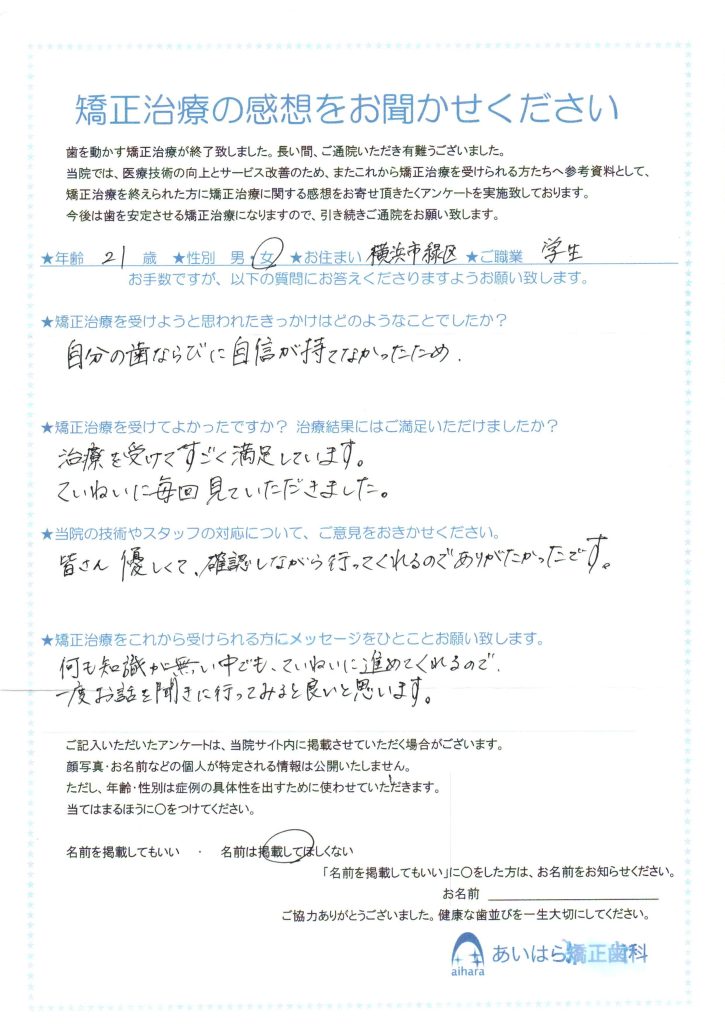 矯正治療の感想をお聞かせください
歯を動かす矯正治療が終了致しました。長い間、ご通院いただき有難うございました。
当院では、医療技術の向上とサービス改善のため、またこれから矯正治療を受けられる方たちへ参考資料として、
矯正治療を終えられた方に矯正治療に関する感想をお寄せ頂きたくアンケートを実施致しております。
今後は歯を安定させる矯正治療になりますので、引き続きご通院をお願い致します。
★年齢 21 歳 ★性別 男・女 ★お住まい 横浜市緑区 ★ご職業 学生
お手数ですが、以下の質問にお答えくださりますようお願い致します。
★矯正治療を受けようと思われたきっかけはどのようなことでしたか？
自分の歯ならびに自信が持てなかったため.
★矯正治療を受けてよかったですか？ 治療結果にはご満足いただけましたか？
治療を受けてすごく満足しています。
ていねいに毎回見ていただきました。
★当院の技術やスタッフの対応について、ご意見をおきかせください。
皆さん優しくて、確認しながら行ってくれるのでありがたかったです。
★矯正治療をこれから受けられる方にメッセージをひとことお願い致します。
何も知識が無い中でも、ていねいに進めてくれるので、
一度お話を聞きに行ってみると良いと思います。
ご記入いただいたアンケートは、当院サイト内に掲載させていただく場合がございます。
顔写真・お名前などの個人が特定される情報は公開いたしません。
ただし、年齢・性別は症例の具体性を出すために使わせていただきます。
当てはまるほうに〇をつけてください。
名前を掲載してもいい ・ 名前は掲載してほしくない
「名前を掲載してもいい」に〇をした方は、お名前をお知らせください。
お名前
ご協力ありがとうございました。健康な歯並びを一生大切にしてください。
aihara あいはら矯正歯科